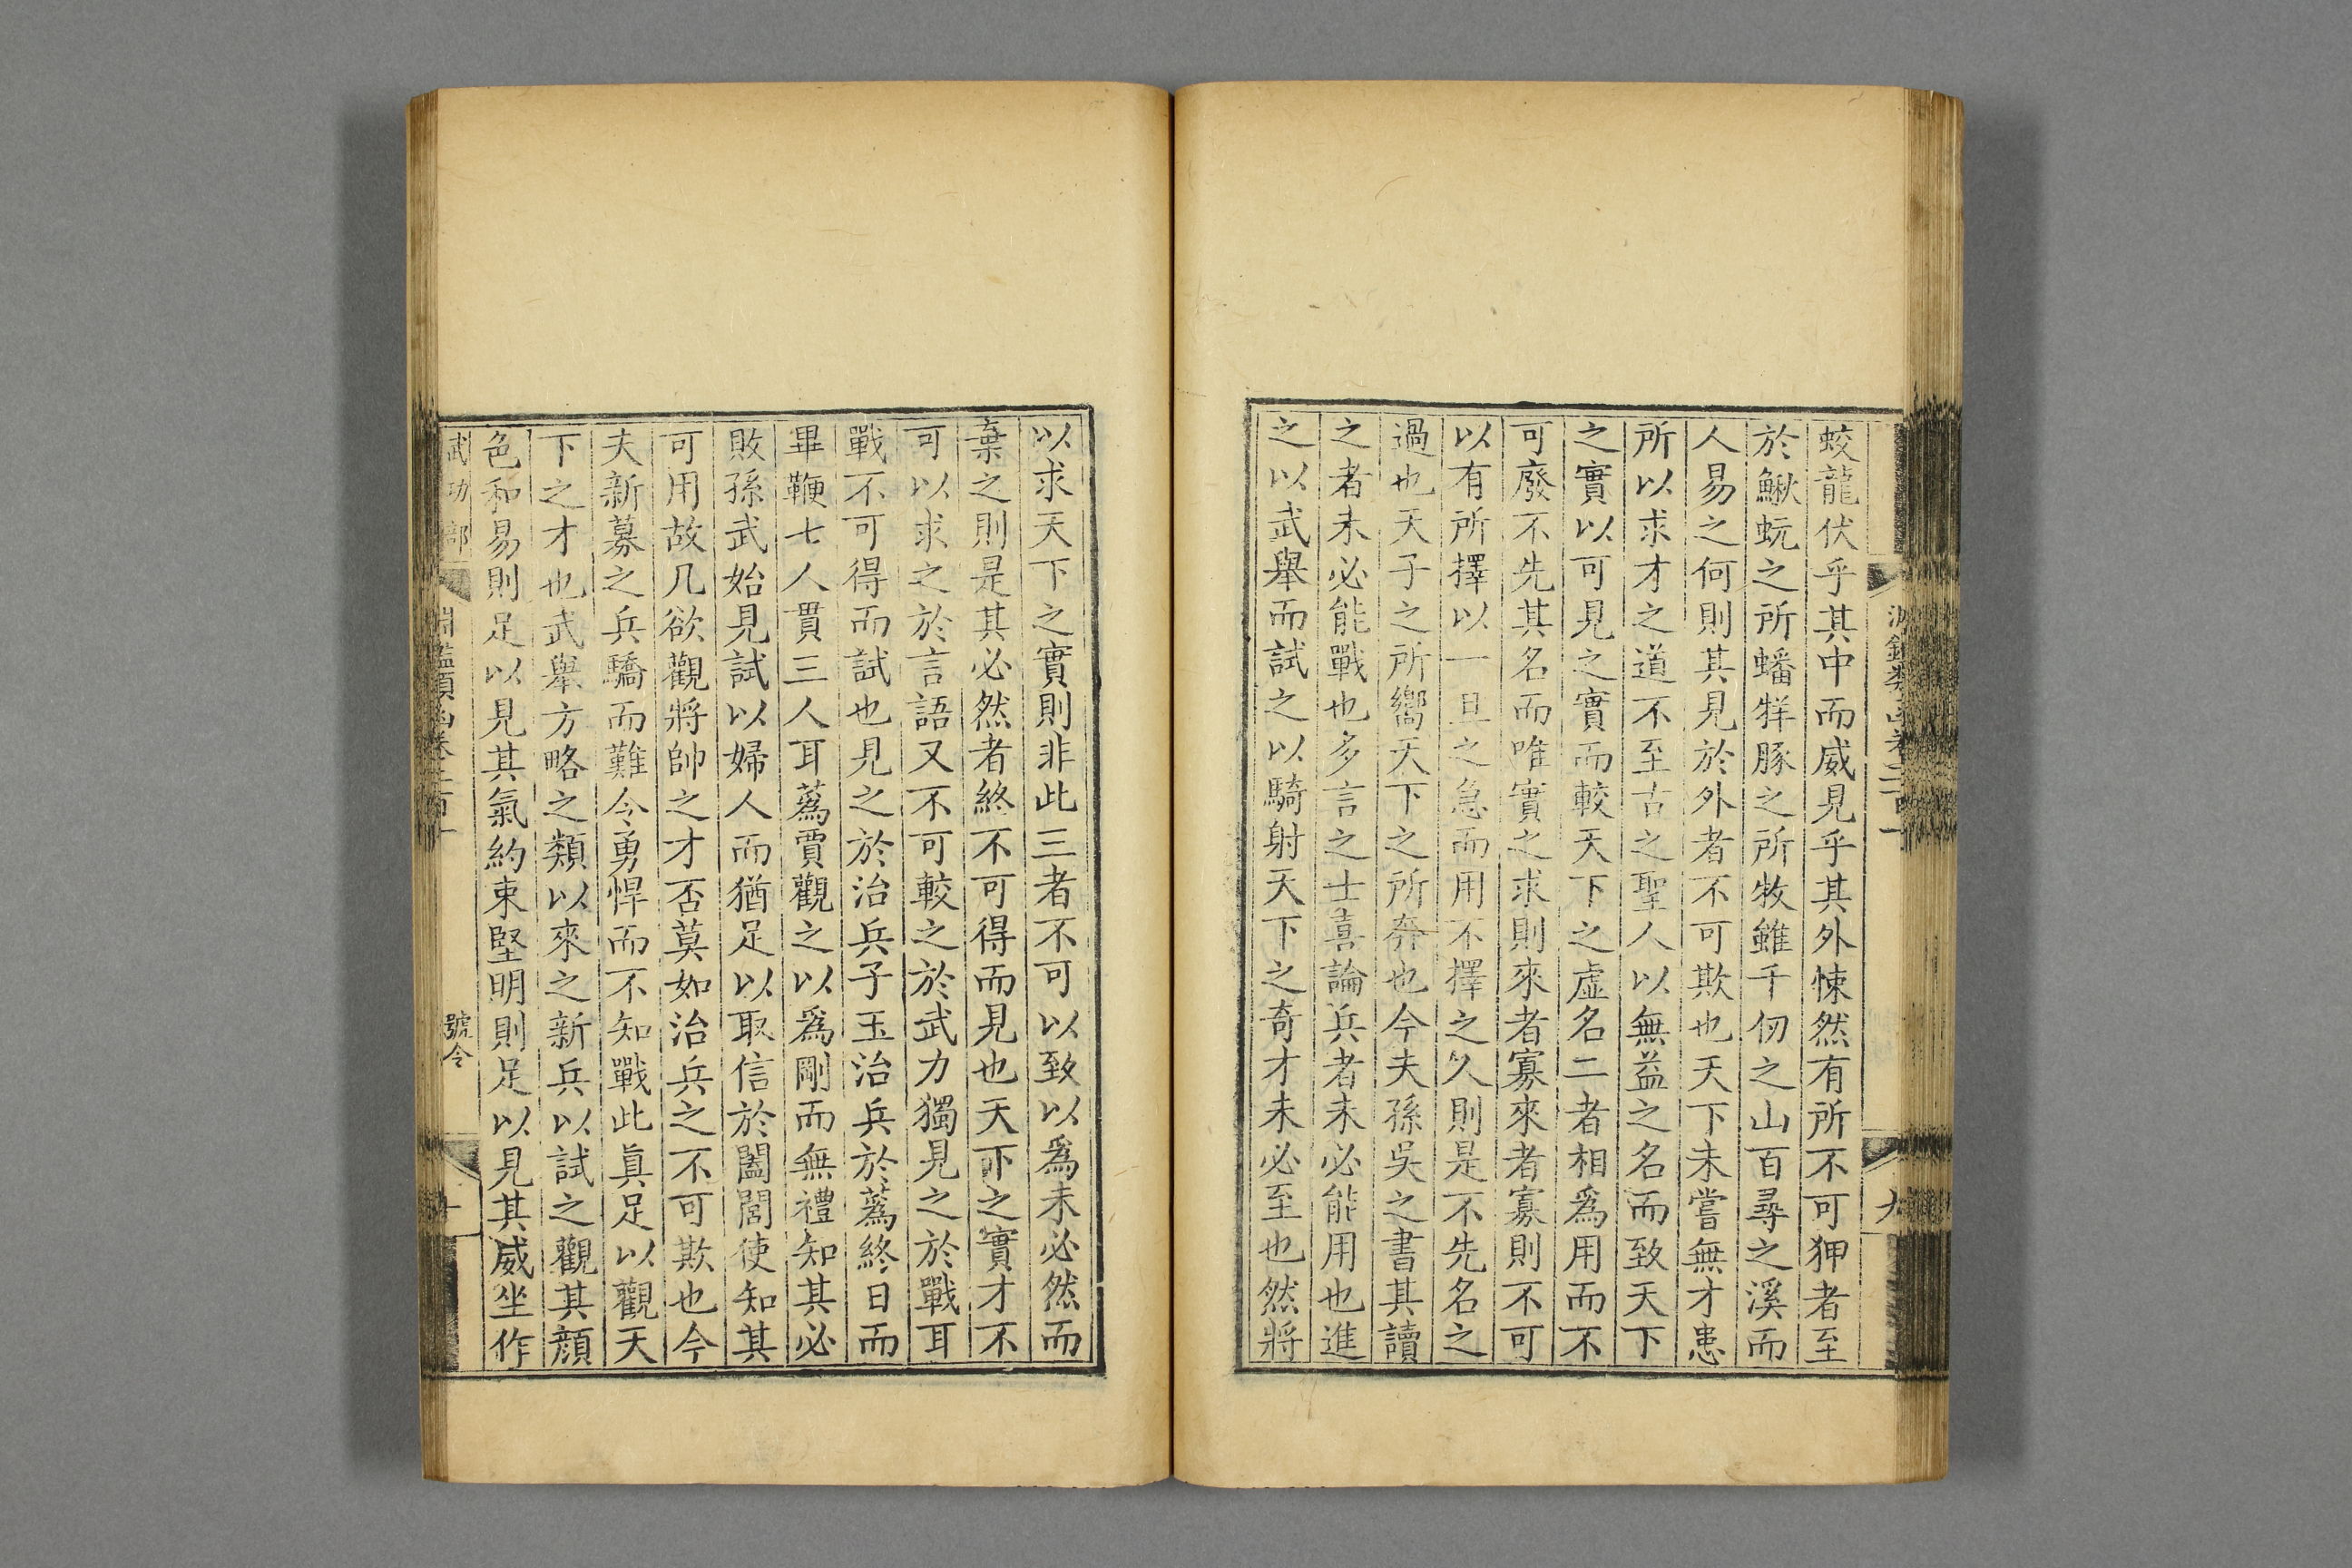 蛟龍伏乎其中而威見乎其外悚然有所不可狎者至
於鰍蚖之所蟠牂豚之所牧雖千仞之山百尋之溪而
人易之何則其見於外者不可欺也天下未嘗無才患
所以求才之道不至古之聖人以無益之名而致天下
之實以可見之實而較天下之虛名二者相爲用而不
可廢不先其名而唯實之求則來者寡來者寡則不可
以有所擇以一旦之急而用不擇之久則是不先名之
過也天子之所嚮天下之所奔也今夫孫吳之書其讀
之者未必能戰也多言之士喜論兵者未必能用也進
之以武舉而試之以騎射天下之奇才未必至也然將
以求天下之實則非此三者不可以致以爲未必然而
棄之則是其必然者終不可得而見也天下之實才不
可以求之於言語又不可較之於武力獨見之於戰耳
戰不可得而試也見之於治兵子玉治兵於蔿終日而
畢鞭七人貫三人耳蔿賈觀之以爲剛而無禮知其必
敗孫武始見試以婦人而猶足以取信於闔閭使知其
可用故凡欲觀將帥之才否莫如治兵之不可欺也今
夫新募之兵驕而難令勇悍而不知戰此眞足以觀天
下之才也武舉方略之類以來之新兵以試之觀其顔
色和易則足以見其氣約束堅明則足以見其威坐作
武功部 淵鑑類函卷二百十 號令